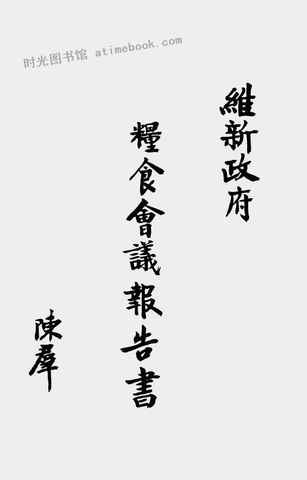 时光图书馆 atimebook.com
維新政府
糧食會議報告書
陳羣